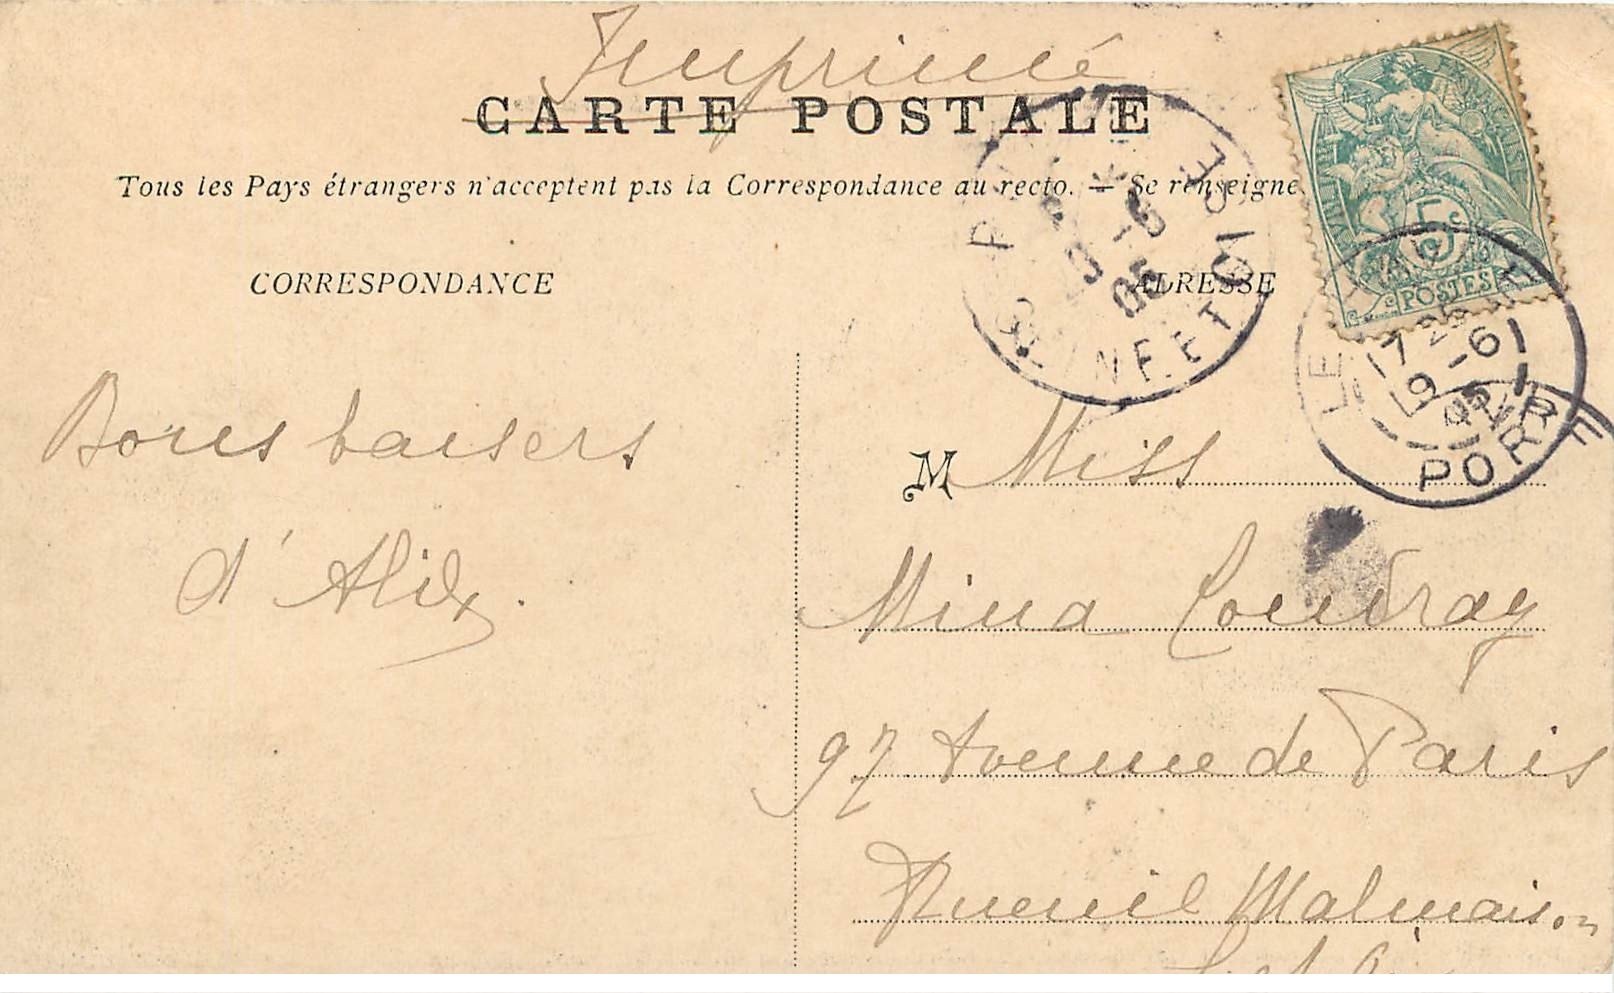 Imprimé
CARTE POSTALE
Tous les Pays étrangers n'acceptent pas la Correspondance au recto. — Se renseigne
CORRESPONDANCE
ADRESSE
5c
POSTES
SEINE ET OISE
9 -6
05
LE
7
9 -6
05
PORT
Bons baisers
d'Alix.
M Miss
Mina Coudray
97 Avenue de Paris
Rueuil Malmaison